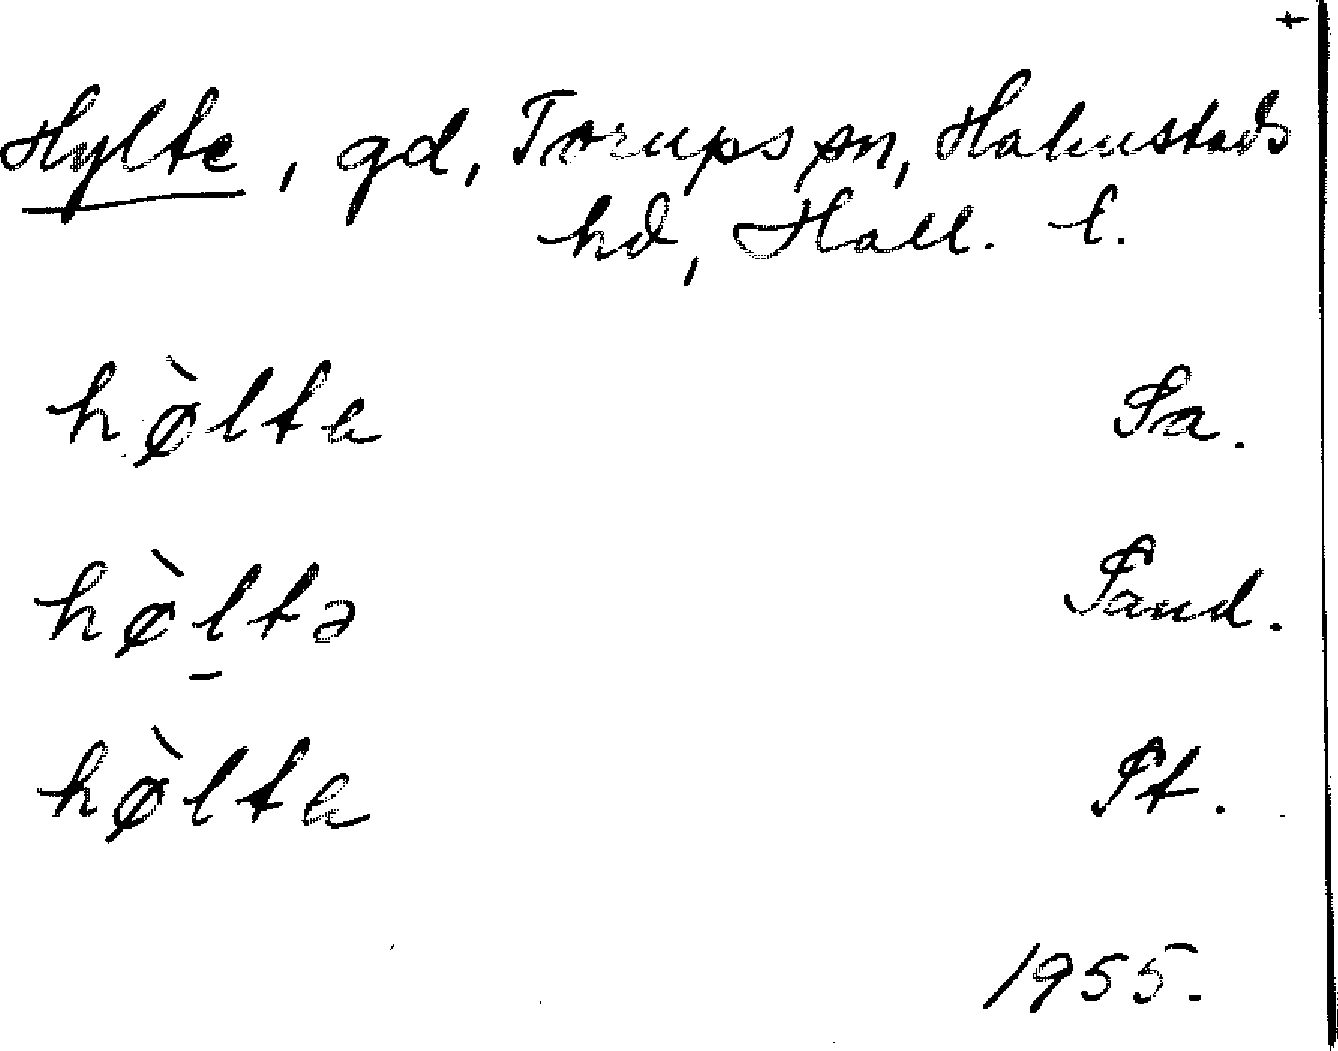 +
Hylte, gd, Torups sn, Halmstads
hd, Hall. l.
hø̀lta Sa.
hø̀l̠tə Sand.
hø̀lta St.
1955.